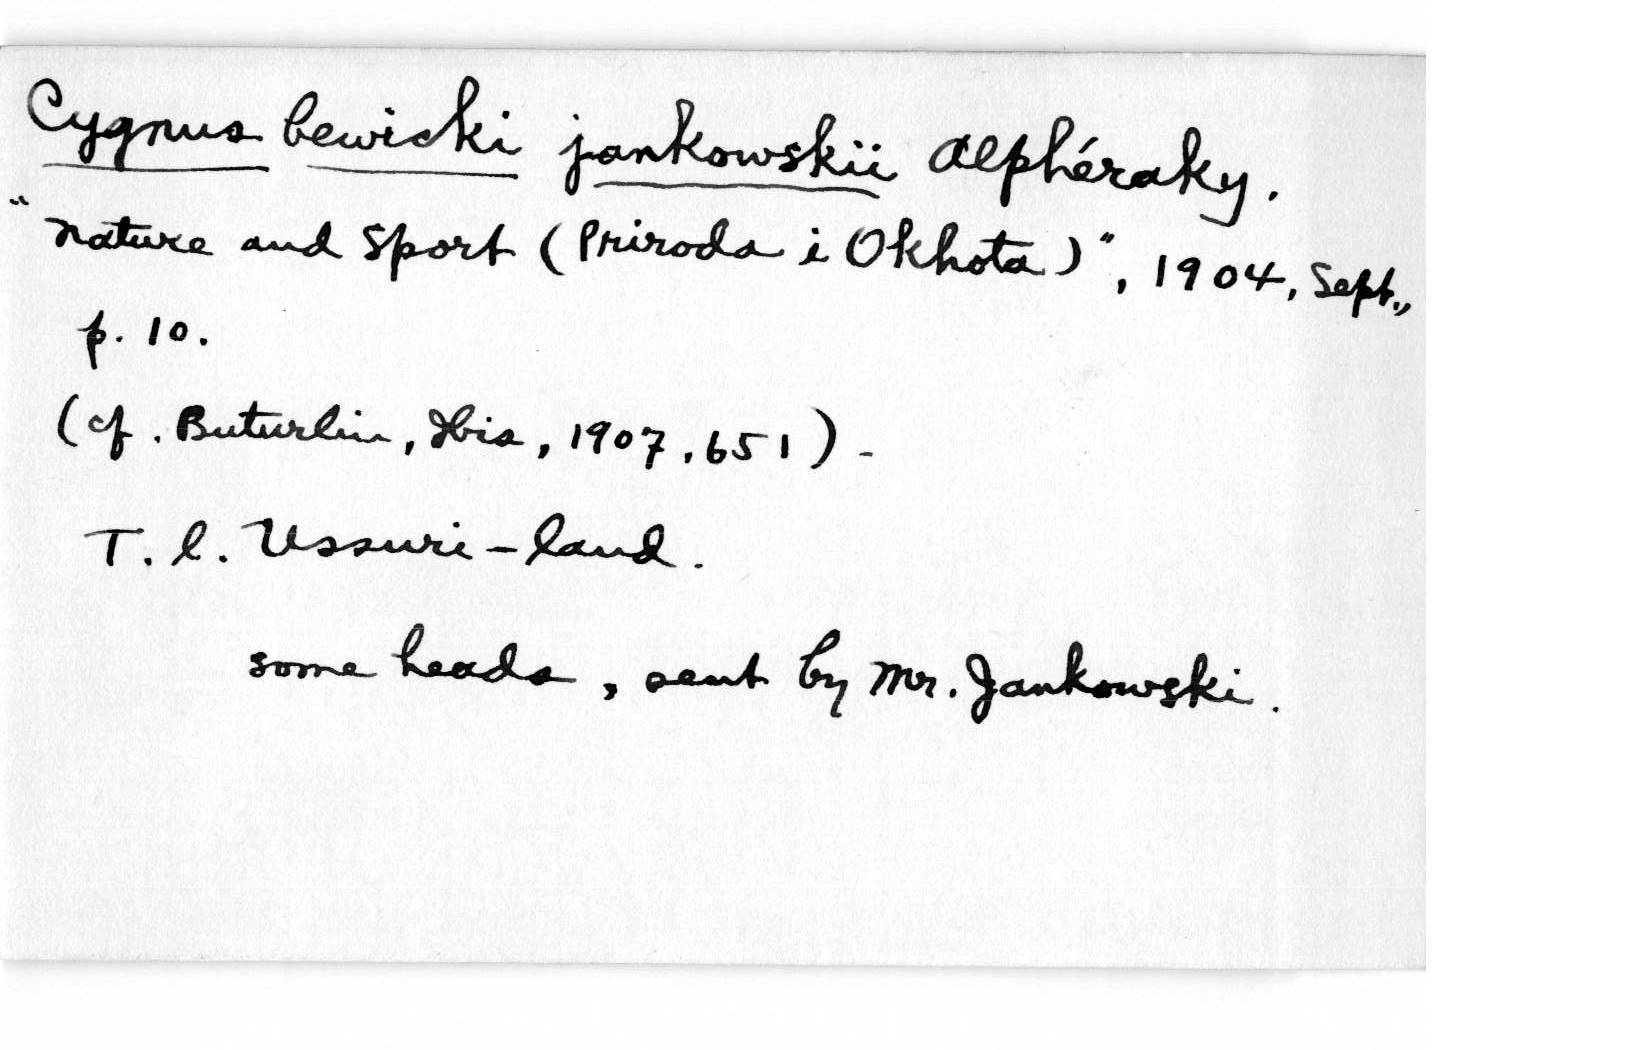 Cygnus bewicki jankowskii Alphéraky.
"Nature and Sport (Priroda i Okhota)", 1904, Sept.,
p. 10.
(cf. Buturlin, Ibis, 1907, 651) -
T. l. Ussuri-land.
some heads, sent by Mr. Jankowski.